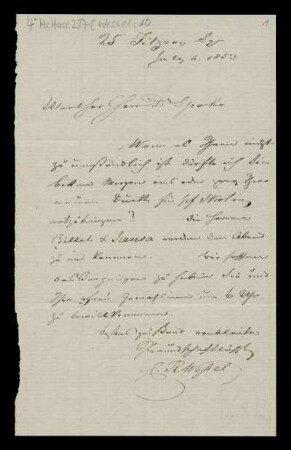 4° Ms. Hass. 287 [Wessel: 1]
1
25 Fitzroy Sq
July 4. 1853
Werther Herr Dr Spohr
Wenn es Ihnen nicht
zu umständlich ist dürfte ich Sie
bitten Morgen eins oder zwey Ihrer
neuen Duette für
mitzubringen? die Herren
Billet & Sansa werden den Abend
zu uns kommen. Wir hoffen
das Vergnügen zu haben Sie und
Ihre Frau Gemahlinn um 6 Uhr
zu bewillkommnen
Bestens grüßend verbleibe
Freundschaftlichst
C. R. Wessel